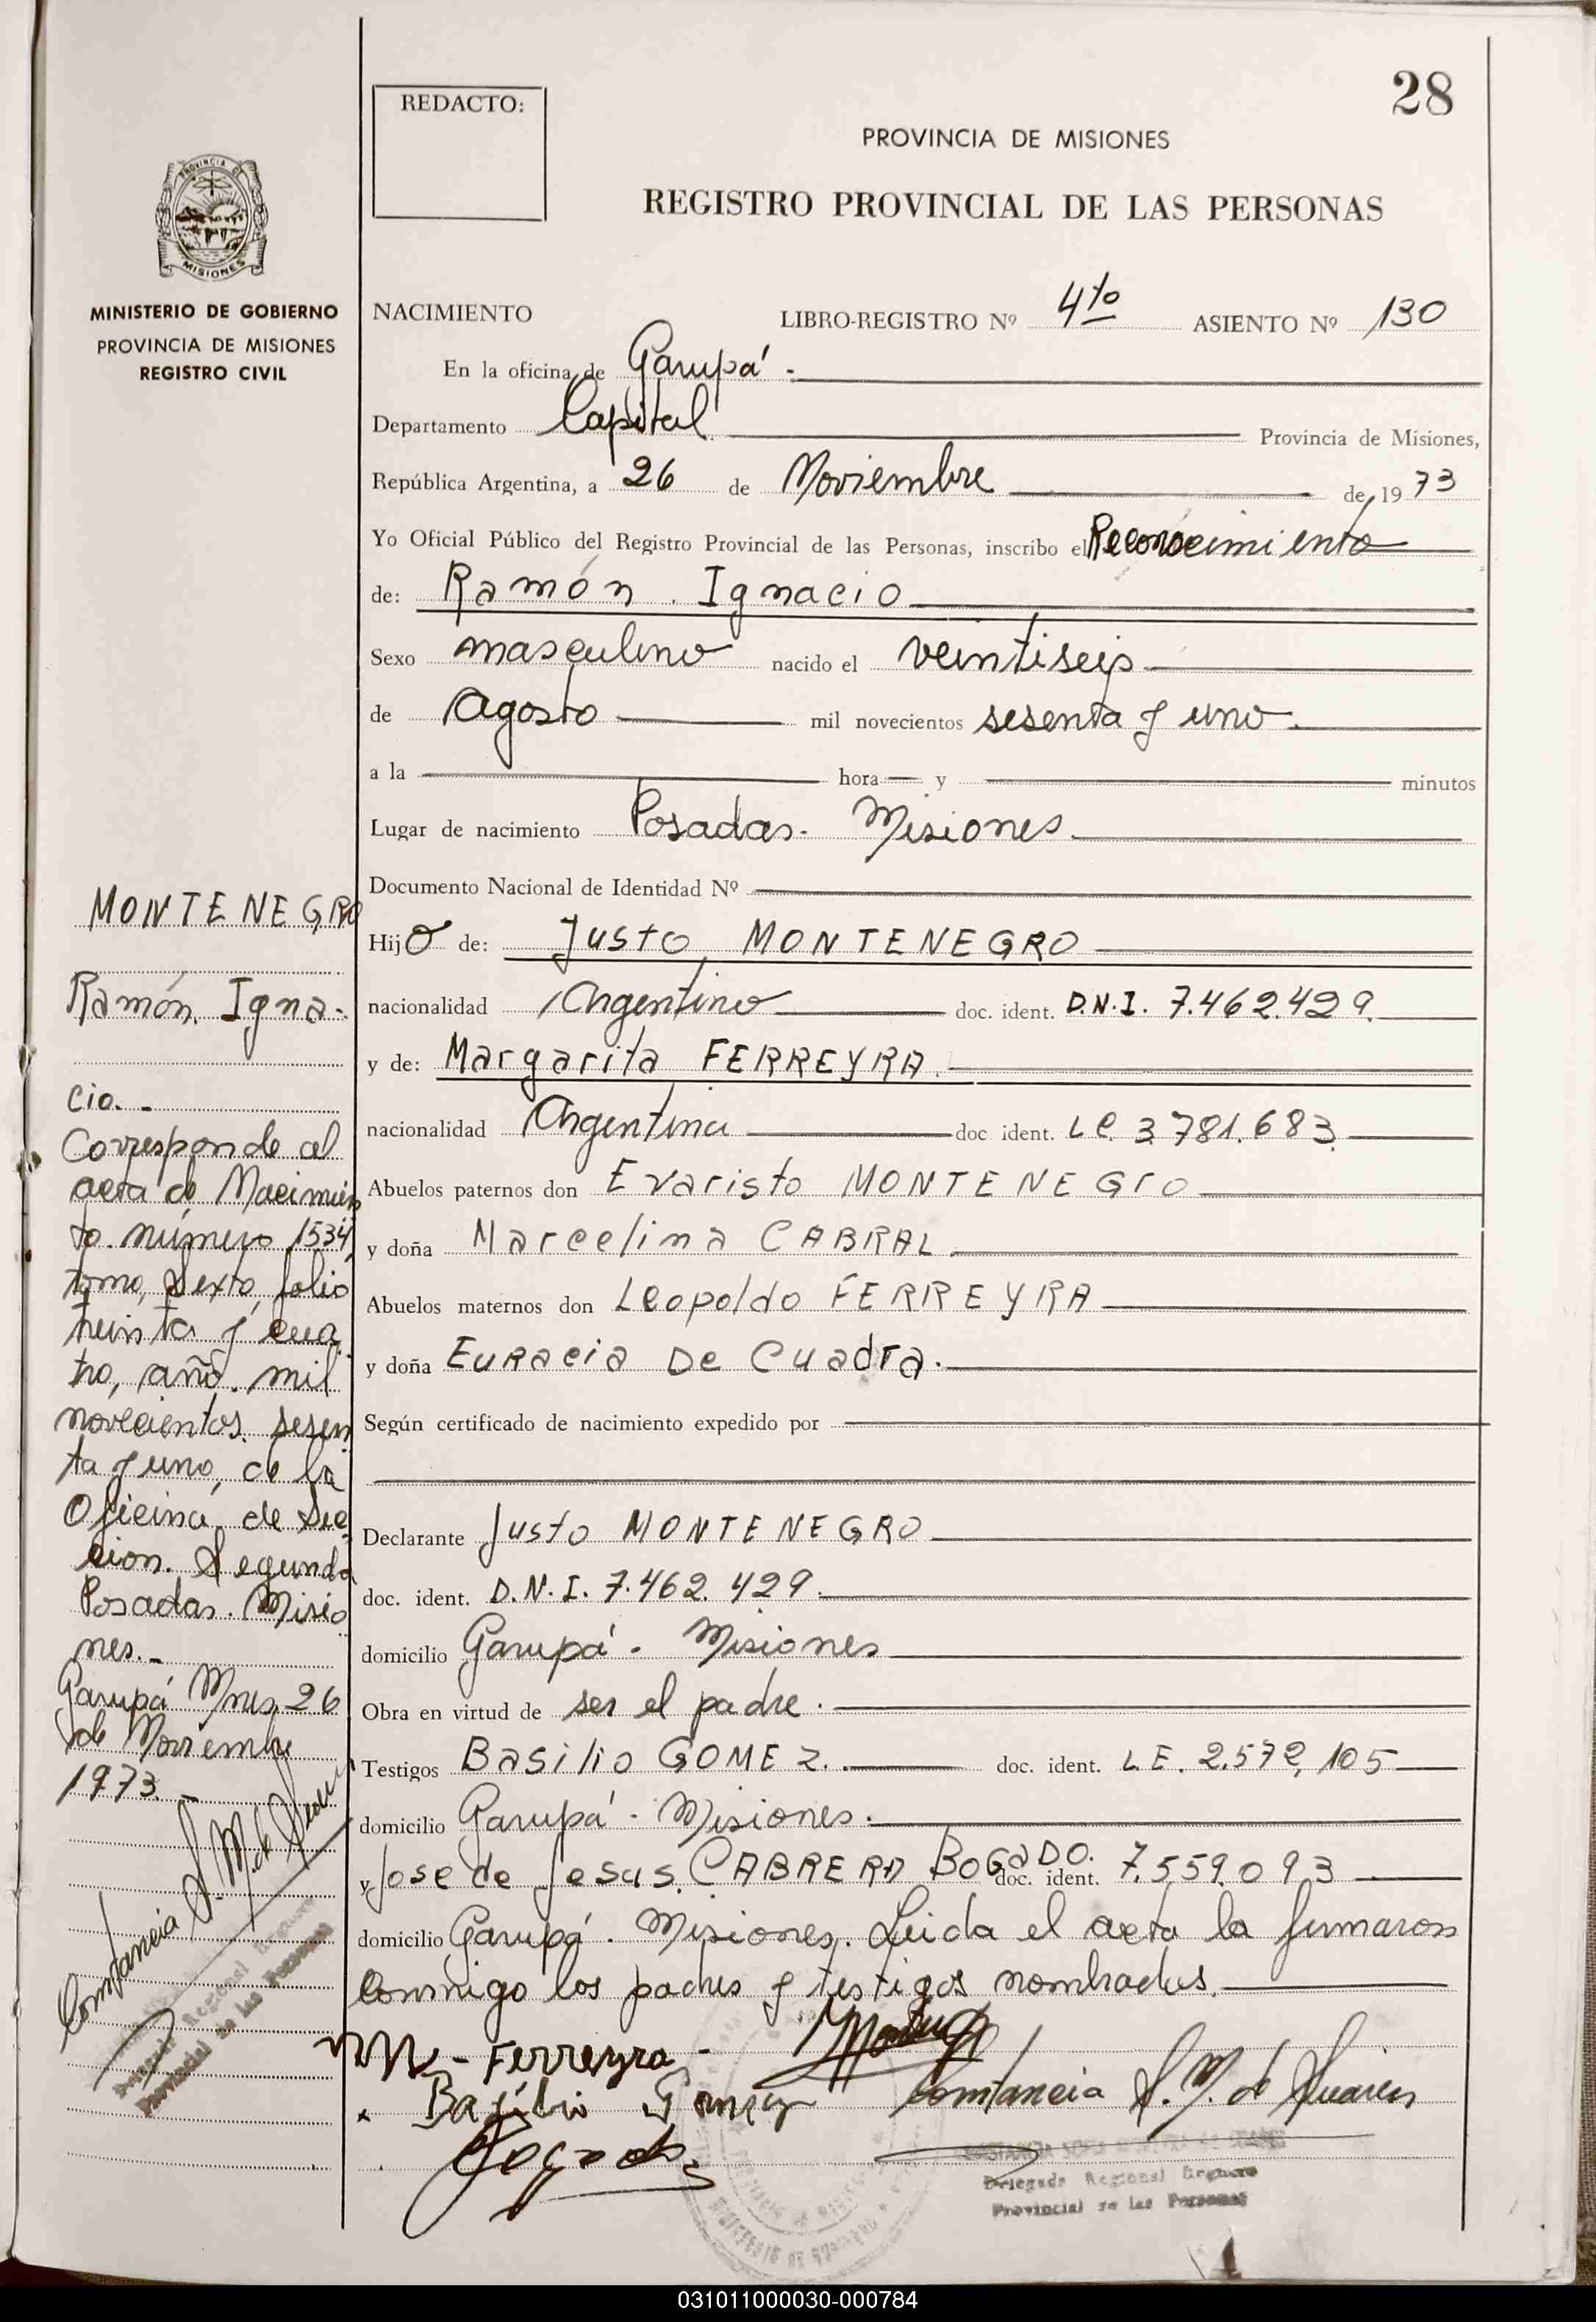 28
REDACTO:
PROVINCIA DE MISIONES
REGISTRO PROVINCIAL DE LAS PERSONAS
PROVINCIA DE
MISIONES
MINISTERIO DE GOBIERNO
PROVINCIA DE MISIONES
REGISTRO CIVIL
NACIMIENTO LIBRO-REGISTRO Nº 4to ASIENTO Nº 130
En la oficina de Garupá.-
Departamento Capital Provincia de Misiones,
República Argentina, a 26 de Noviembre de 19 73
Yo Oficial Público del Registro Provincial de las Personas, inscribo el Reconocimiento
de: Ramón Ignacio
Sexo masculino nacido el veintiseis
de Agosto mil novecientos sesenta y uno.
a la hora y minutos
Lugar de nacimiento Posadas- Misiones.
Documento Nacional de Identidad Nº
Hijo de: Justo MONTENEGRO
nacionalidad Argentino doc. ident. D.N.I. 7.462.429.
y de: Margarita FERREYRA.
nacionalidad Argentina doc ident. LC. 3.781.683.
Abuelos paternos don Evaristo MONTENEGrO
y doña Marcelina CABRAL.
Abuelos maternos don Leopoldo FERREYRA
y doña EuRacia De Cuadra.
Según certificado de nacimiento expedido por
Declarante Justo MONTENEGRO
doc. ident. D.N.I. 7.462.429.
domicilio Garupá - Misiones
Obra en virtud de ser el padre.
Testigos Basilio GOMEZ. doc. ident. L.E. 2.572.105
domicilio Garupá - Misiones.
y Jose de Jesus CABRERA BOGaDO. doc. ident. 7.559.093
domicilio Garupá. Misiones. Leida el acta la firmaron
conmigo los padres y testigos nombrados.
MONTENEGRO
Ramón Igna-
cio.-
Corresponde al
acta de Nacimien
to número 1534,
tomo, Sexto, folio
treinta y cua
tro, año mil
novecientos sesen
ta y uno, de la
Oficina de Sec
cion. Segunda
Posadas. Misio
nes.-
Garupá Mnes 26
de Noviembre
1973.-
Constancia S. M. de Suarez
Delegada Regional Registro
Provincial de las Personas
M - Ferreyra -
Basilio Gomez
Constancia S. M. de Suarez
Bogado
Delegada Regional Registro
Provincial de las Personas
031011000030-000784